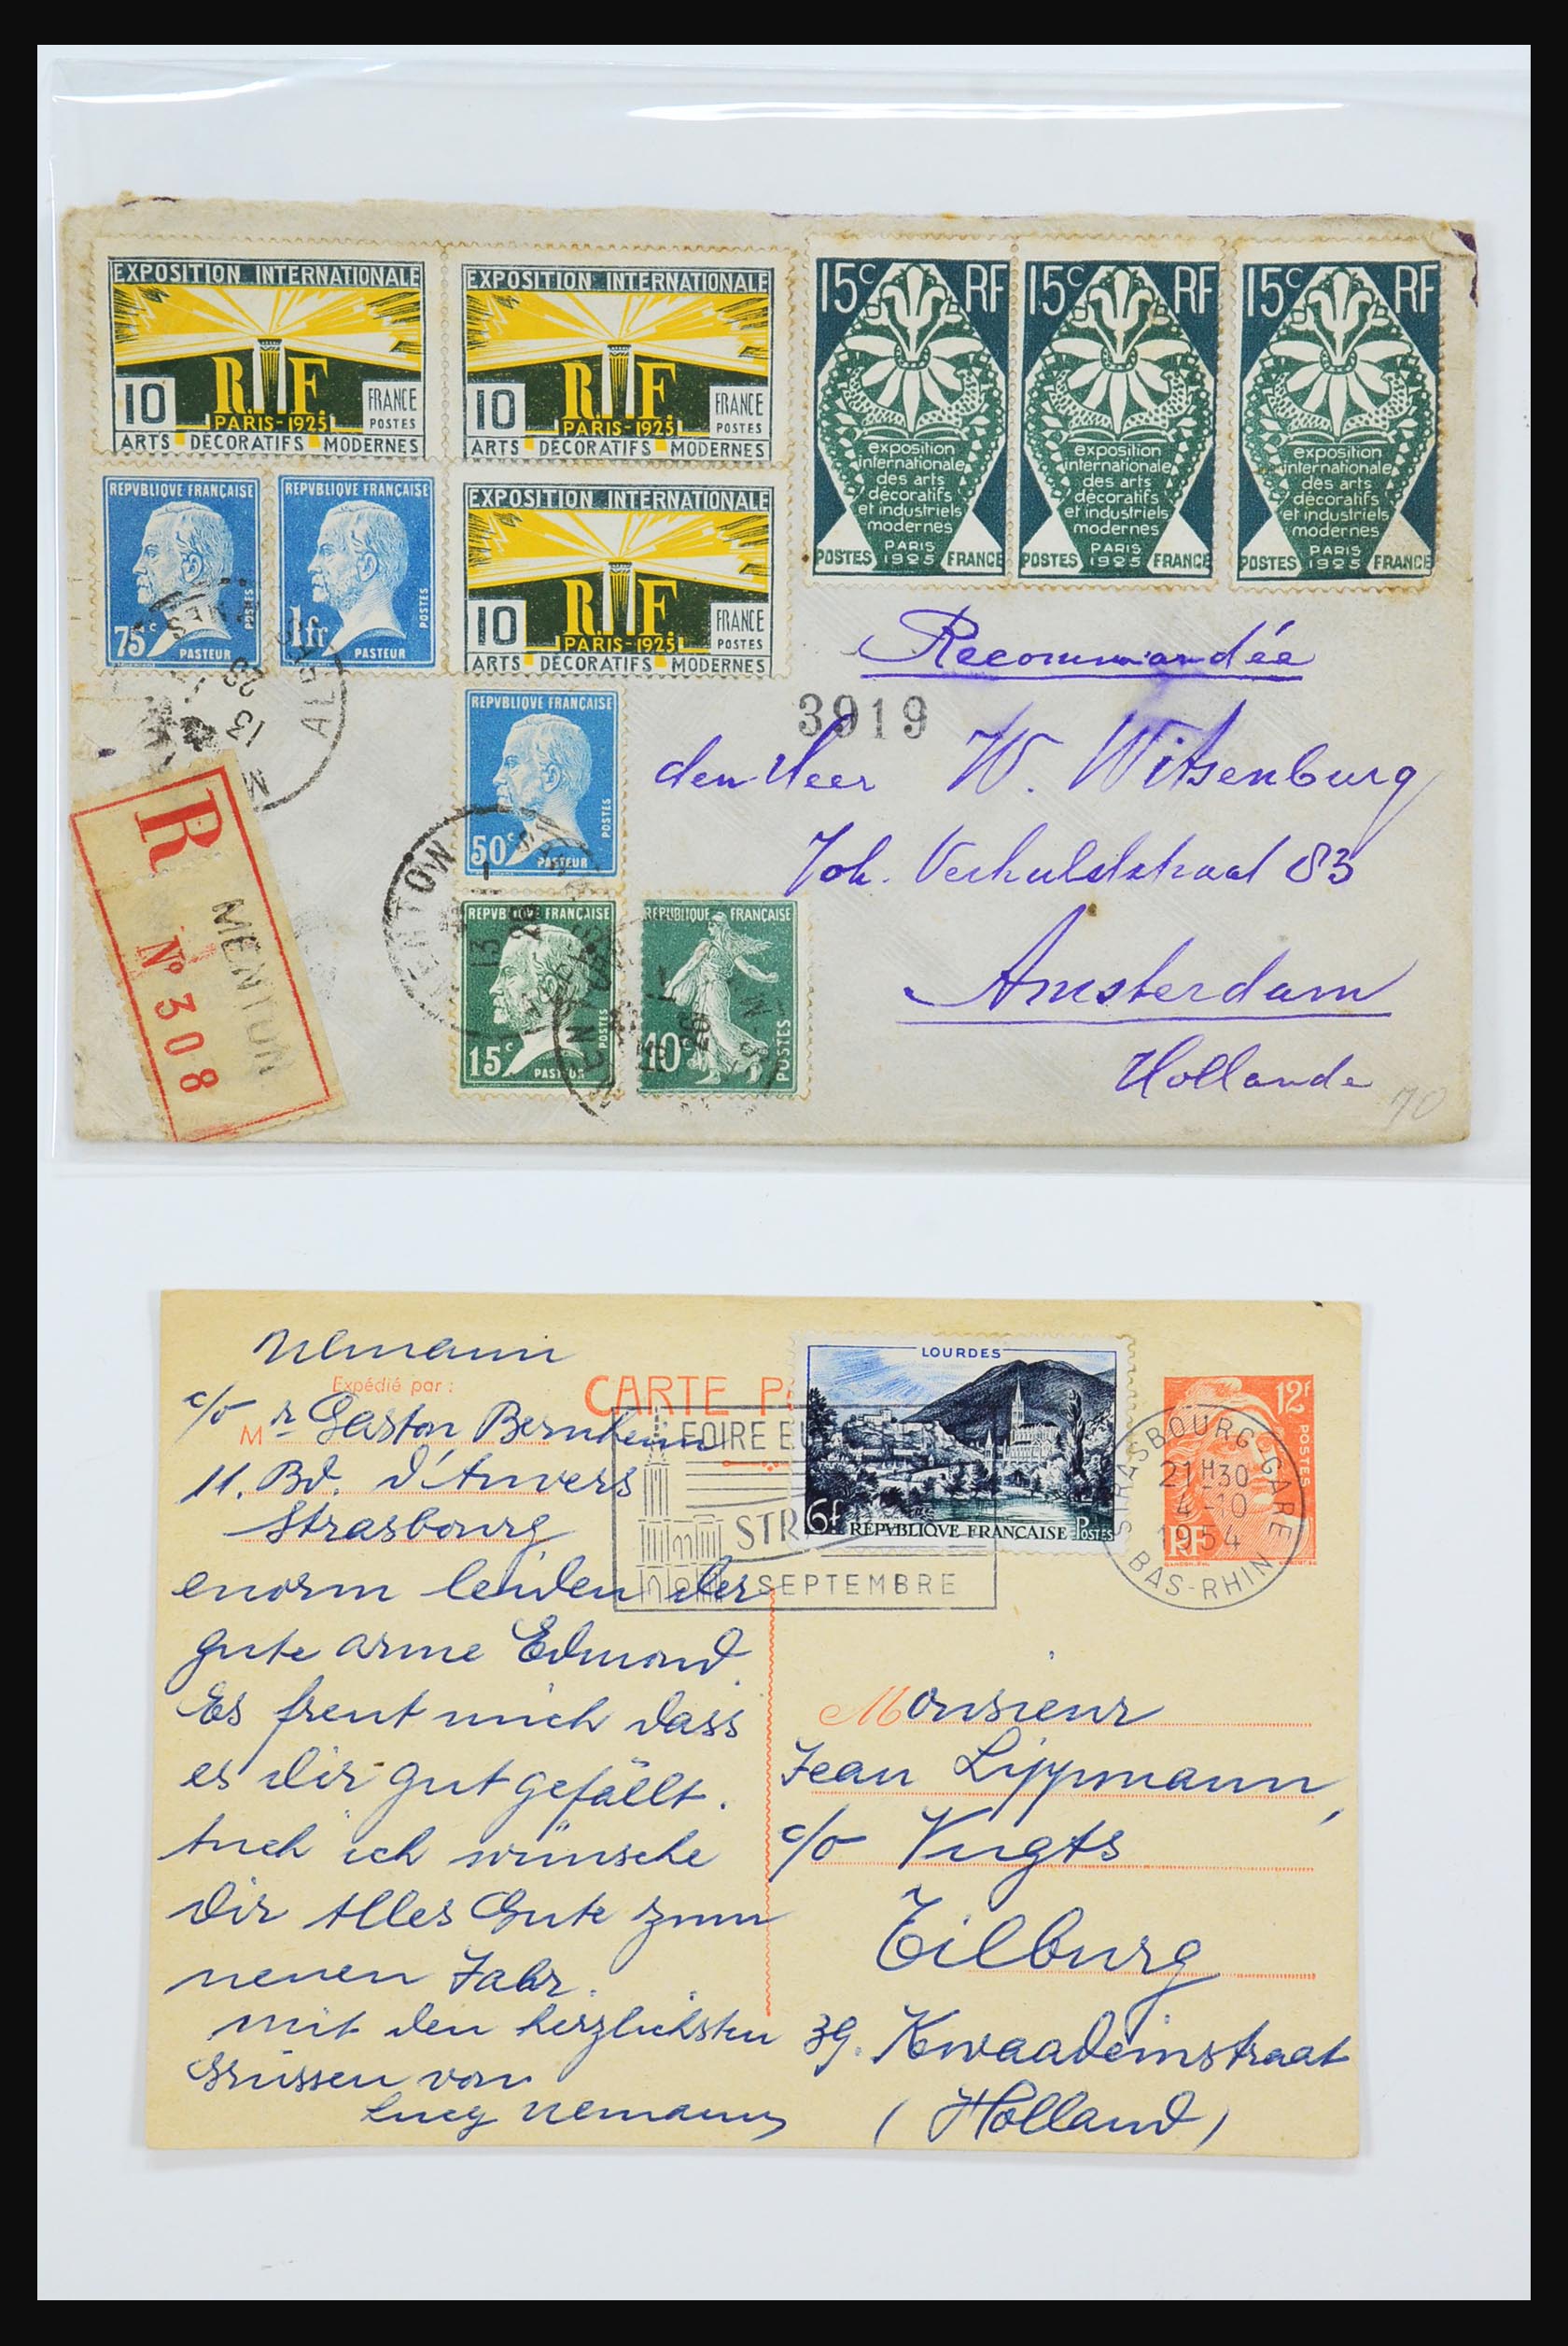 EXPOSITION INTERNATIONALE
R.F.
10
PARIS-1925
FRANCE
POSTES
ARTS DÉCORATIFS MODERNES
EXPOSITION INTERNATIONALE
R.F.
10
PARIS-1925
FRANCE
POSTES
ARTS DÉCORATIFS MODERNES
15c RF
exposition
internationale
des arts
décoratifs
et industriels
modernes
PARIS
1925
POSTES FRANCE
15c RF
exposition
internationale
des arts
décoratifs
et industriels
modernes
PARIS
1925
POSTES FRANCE
15c RF
exposition
internationale
des arts
décoratifs
et industriels
modernes
PARIS
1925
POSTES FRANCE
REPVBLIQVE FRANÇAISE
75c
POSTES
PASTEUR
REPVBLIQVE FRANÇAISE
1fr
POSTES
PASTEUR
EXPOSITION INTERNATIONALE
R.F.
10
PARIS-1925
FRANCE
POSTES
ARTS DÉCORATIFS MODERNES
Recommandée
3919
den Heer W. Witsenburg
Joh. Verhulststraat 83
Amsterdam
Hollande
70
REPVBLIQVE FRANÇAISE
50c
POSTES
PASTEUR
REPVBLIQVE FRANÇAISE
15c
POSTES
PASTEUR
REPUBLIQUE FRANÇAISE
10c
POSTES
MENTON
13
26
R
MENTON
No 308
Nemann
Expédié par :
c/o Mr Gaston Bernheim
11. Bd. d'Anvers
Strasbourg
enorm leiden der
gute arme Edmond.
Es freut mich dass
es dir gut gefällt.
Auch ich wünsche
Dir Alles Gute zum
neuen Jahr.
mit den herzlichsten
Grüssen von
Lucy Nemann
CARTE P
FOIRE EU
STR
SEPTEMBRE
LOURDES
6f
REPVBLIQVE FRANÇAISE POSTES
12f
POSTES
RF
STRASBOURG GARE
21H30
4-10
1954
BAS-RHIN
Monsieur
Jean Lippmann,
c/o Vugts
Tilburg
39. Kwaadeinstraat
(Holland)